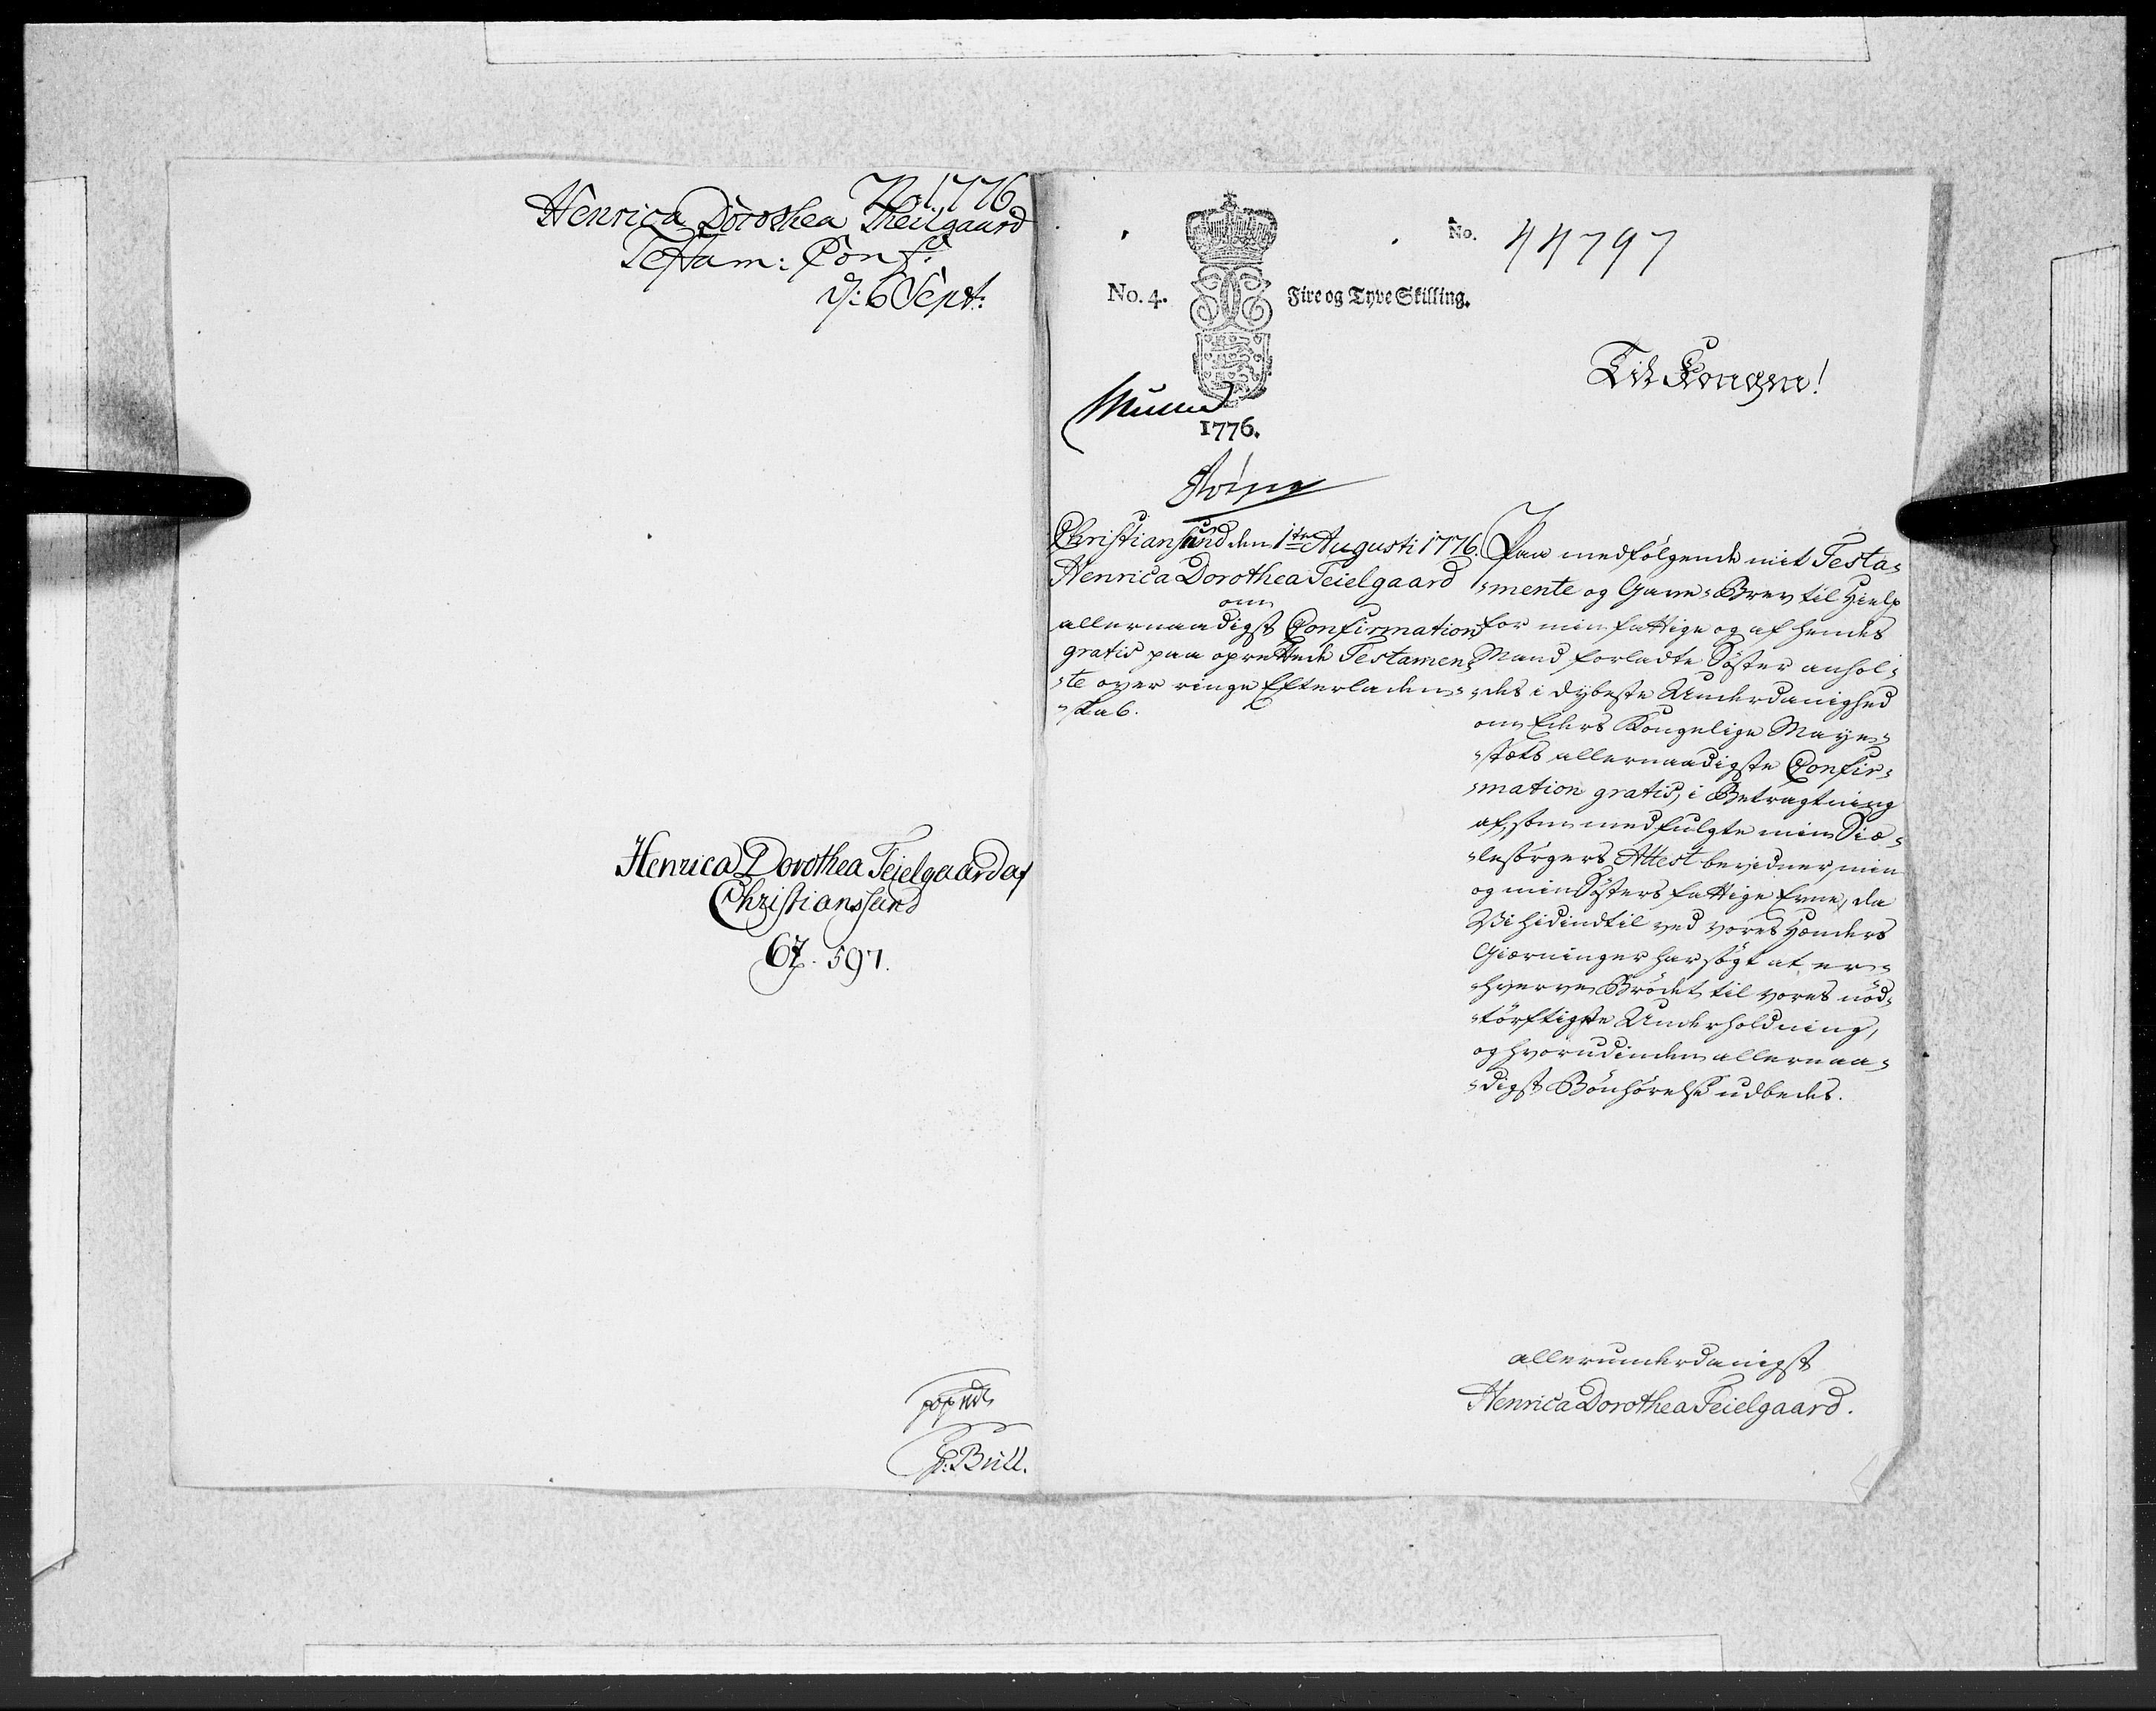 1776
Henrica Dorothea Theilgaard
Testam: Conf:
d: 6 Sept:
Henrica Dorothea Teielgaard af
Christianssund
67. 597.
P: Bull.
No. 44797
No. 4. Fire og Tyve Skilling.
Til Kongen!
1776.
Christiansund den 1ste Augusti 1776.
Henrica Dorothea Teielgaard
om
allernaadigst Confirmation
gratis paa oprettede Testamen-
-te over ringe Efterladen-
-skab.
Paa medfølgende mit Testa-
-mente og Gave-Brev til Hielp
for min fattige og af hendes
Mand forladte Søster anhol-
-des i dybeste Underdanighed
om Eders Kongelige Maye-
-stæts allernaadigste Confir-
-mation gratis, i Betragtning
af, som medfulgte min Siæ-
-lesørgers Attest bevidner, min
og min Søsters fattige Evne, da
Vi hidindtil ved vores Hænders
Giærninger har søgt at er-
-hverve Brødet til vores nød-
-tørftigste Underholdning,
og hvorudinden allernaa-
-digst Bønhørelse udbedes.
allerunderdanigst
Henrica Dorothea Teielgaard.